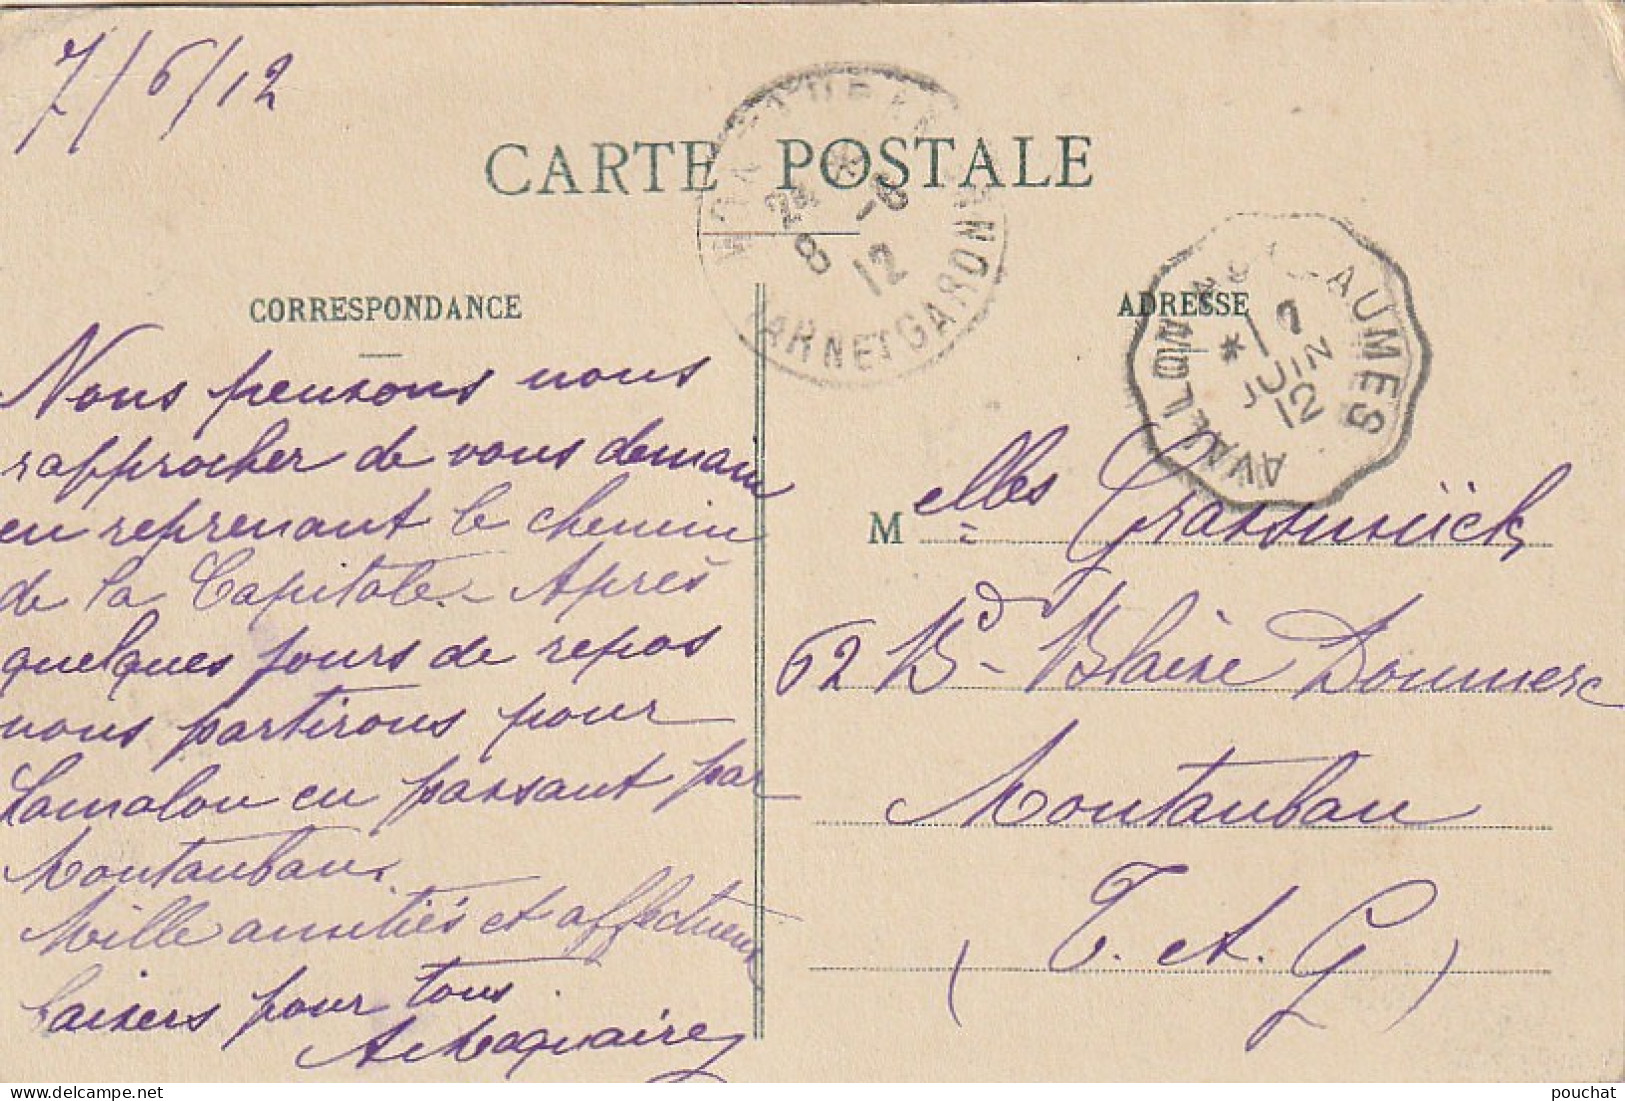 7/6/12
CARTE POSTALE
24*
8 -6
12
TARN ET GARONNE
CORRESPONDANCE
ADRESSE
AVALLON A NUITS AUMES
* 1 7
JUIN
12
Nous pensons nous
rapprocher de vous demain
en reprenant le chemin
de la Capitale - Après
quelques jours de repos
nous partirons pour
Lamalou en passant par
Montauban.
Mille amitiés et affectueux
baisers pour tous.
Melles
62 Bd - Blaise Doumerc
Montauban
(T. et G.)
pouchat